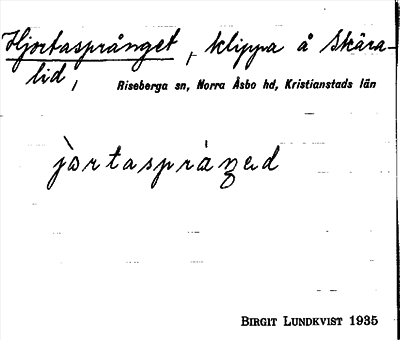 Hjortasprånget, klippa å Skära-
lid,
Riseberga sn, Norra Åsbo hd, Kristianstads län
jòrtaspráŋəd
BIRGIT LUNDKVIST 1935